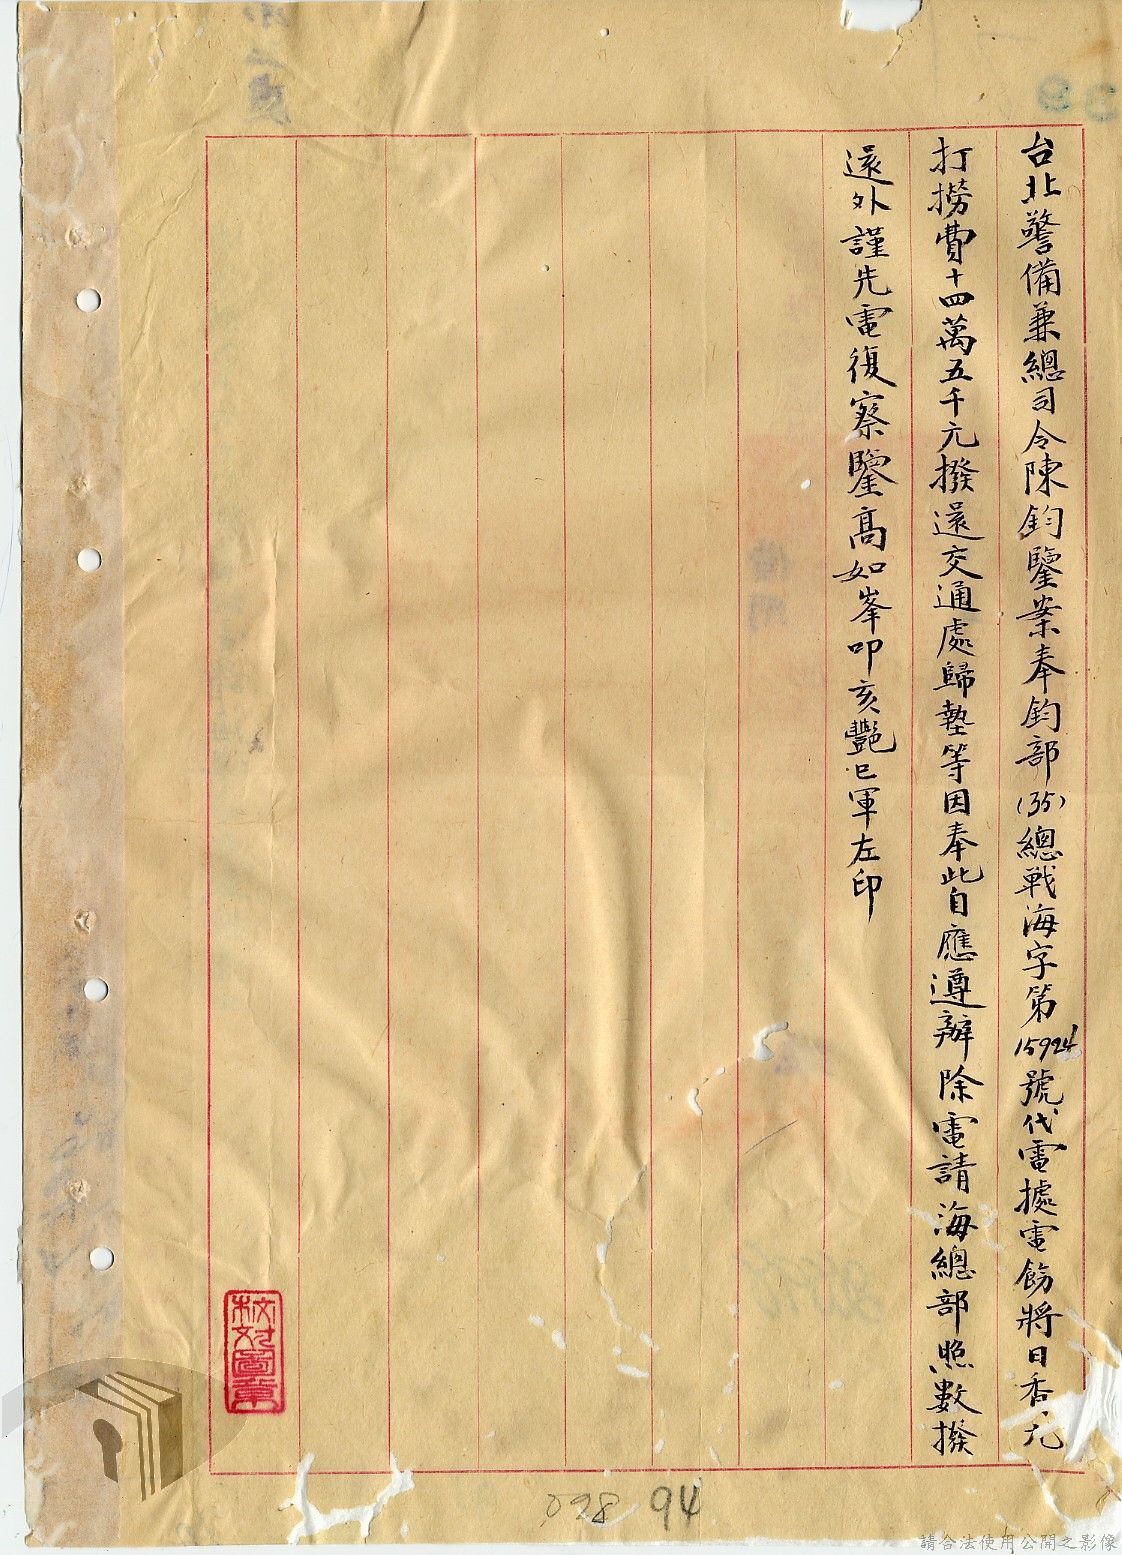 台北警備兼總司令陳鈞鑒案奉鈞部(35)總戰海字第15924號代電據電飭將日香丸
打撈費十四萬五千元撥還交通處歸墊等因奉此自應遵辦除電請海總部照數撥
還外謹先電復察鑒高如峯叩亥艷巳軍左印
校對圖章
098 94
請合法使用公開之影像